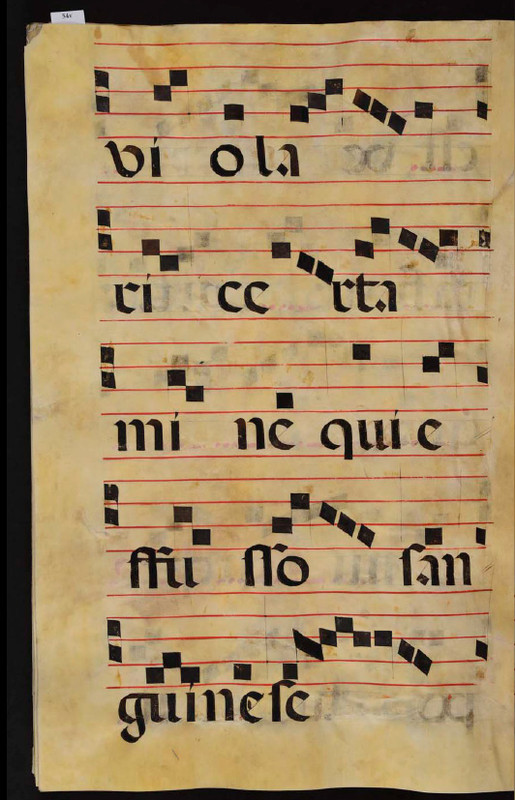 54v
vi ola
ri ce rta
mi ne qui e
ffu sso san
guine se